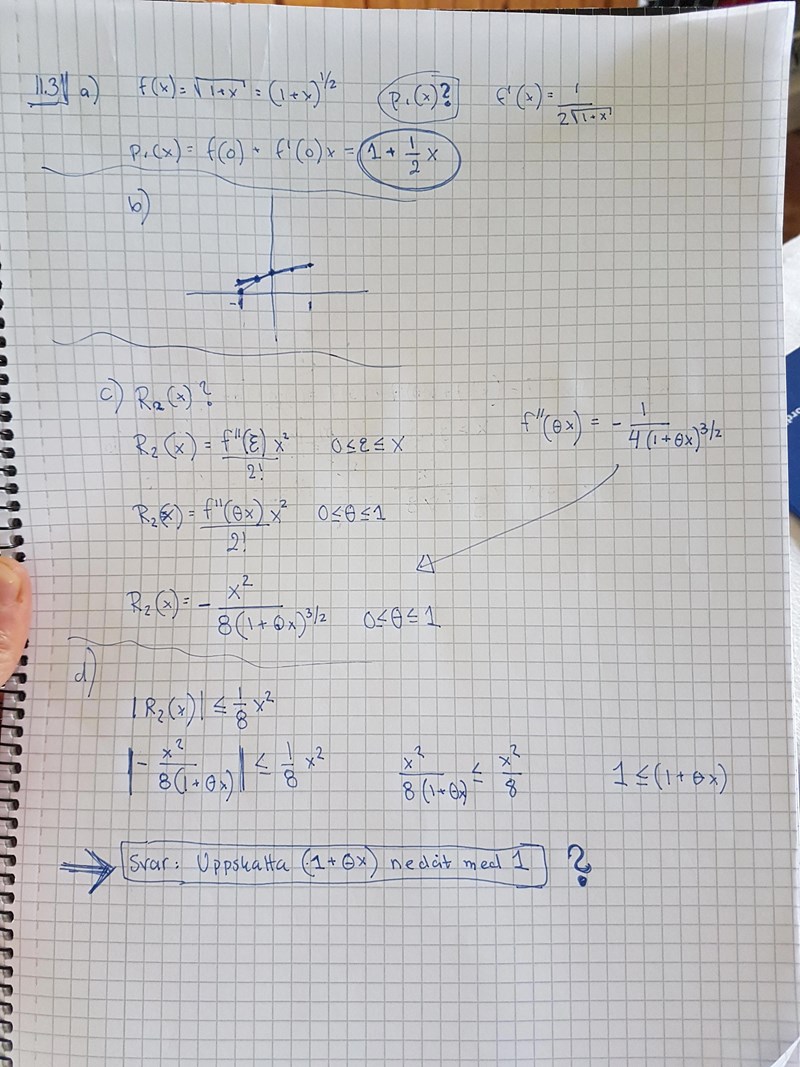 11.31 a) f(x) = √1+x = (1+x)^1/2 p₁(x)? f'(x) = 1/2√1+x
p₁(x) = f(0) + f'(0)x = 1 + 1/2 x
b)
-1 1
c) R₂(x)?
R₂(x) = f''(ξ)/2! x² 0≤ξ≤x f''(θx) = - 1/4(1+θx)^3/2
R₂(x) = f''(θx)/2! x² 0≤θ≤1
R₂(x) = - x²/8(1+θx)^3/2 0≤θ≤1
d)
|R₂(x)| ≤ 1/8 x²
|- x²/8(1+θx)| ≤ 1/8 x² x²/8(1+θx) ≤ x²/8 1 ≤ (1+θx)
⇒ Svar: Uppskatta (1+θx) nedåt med 1 ?